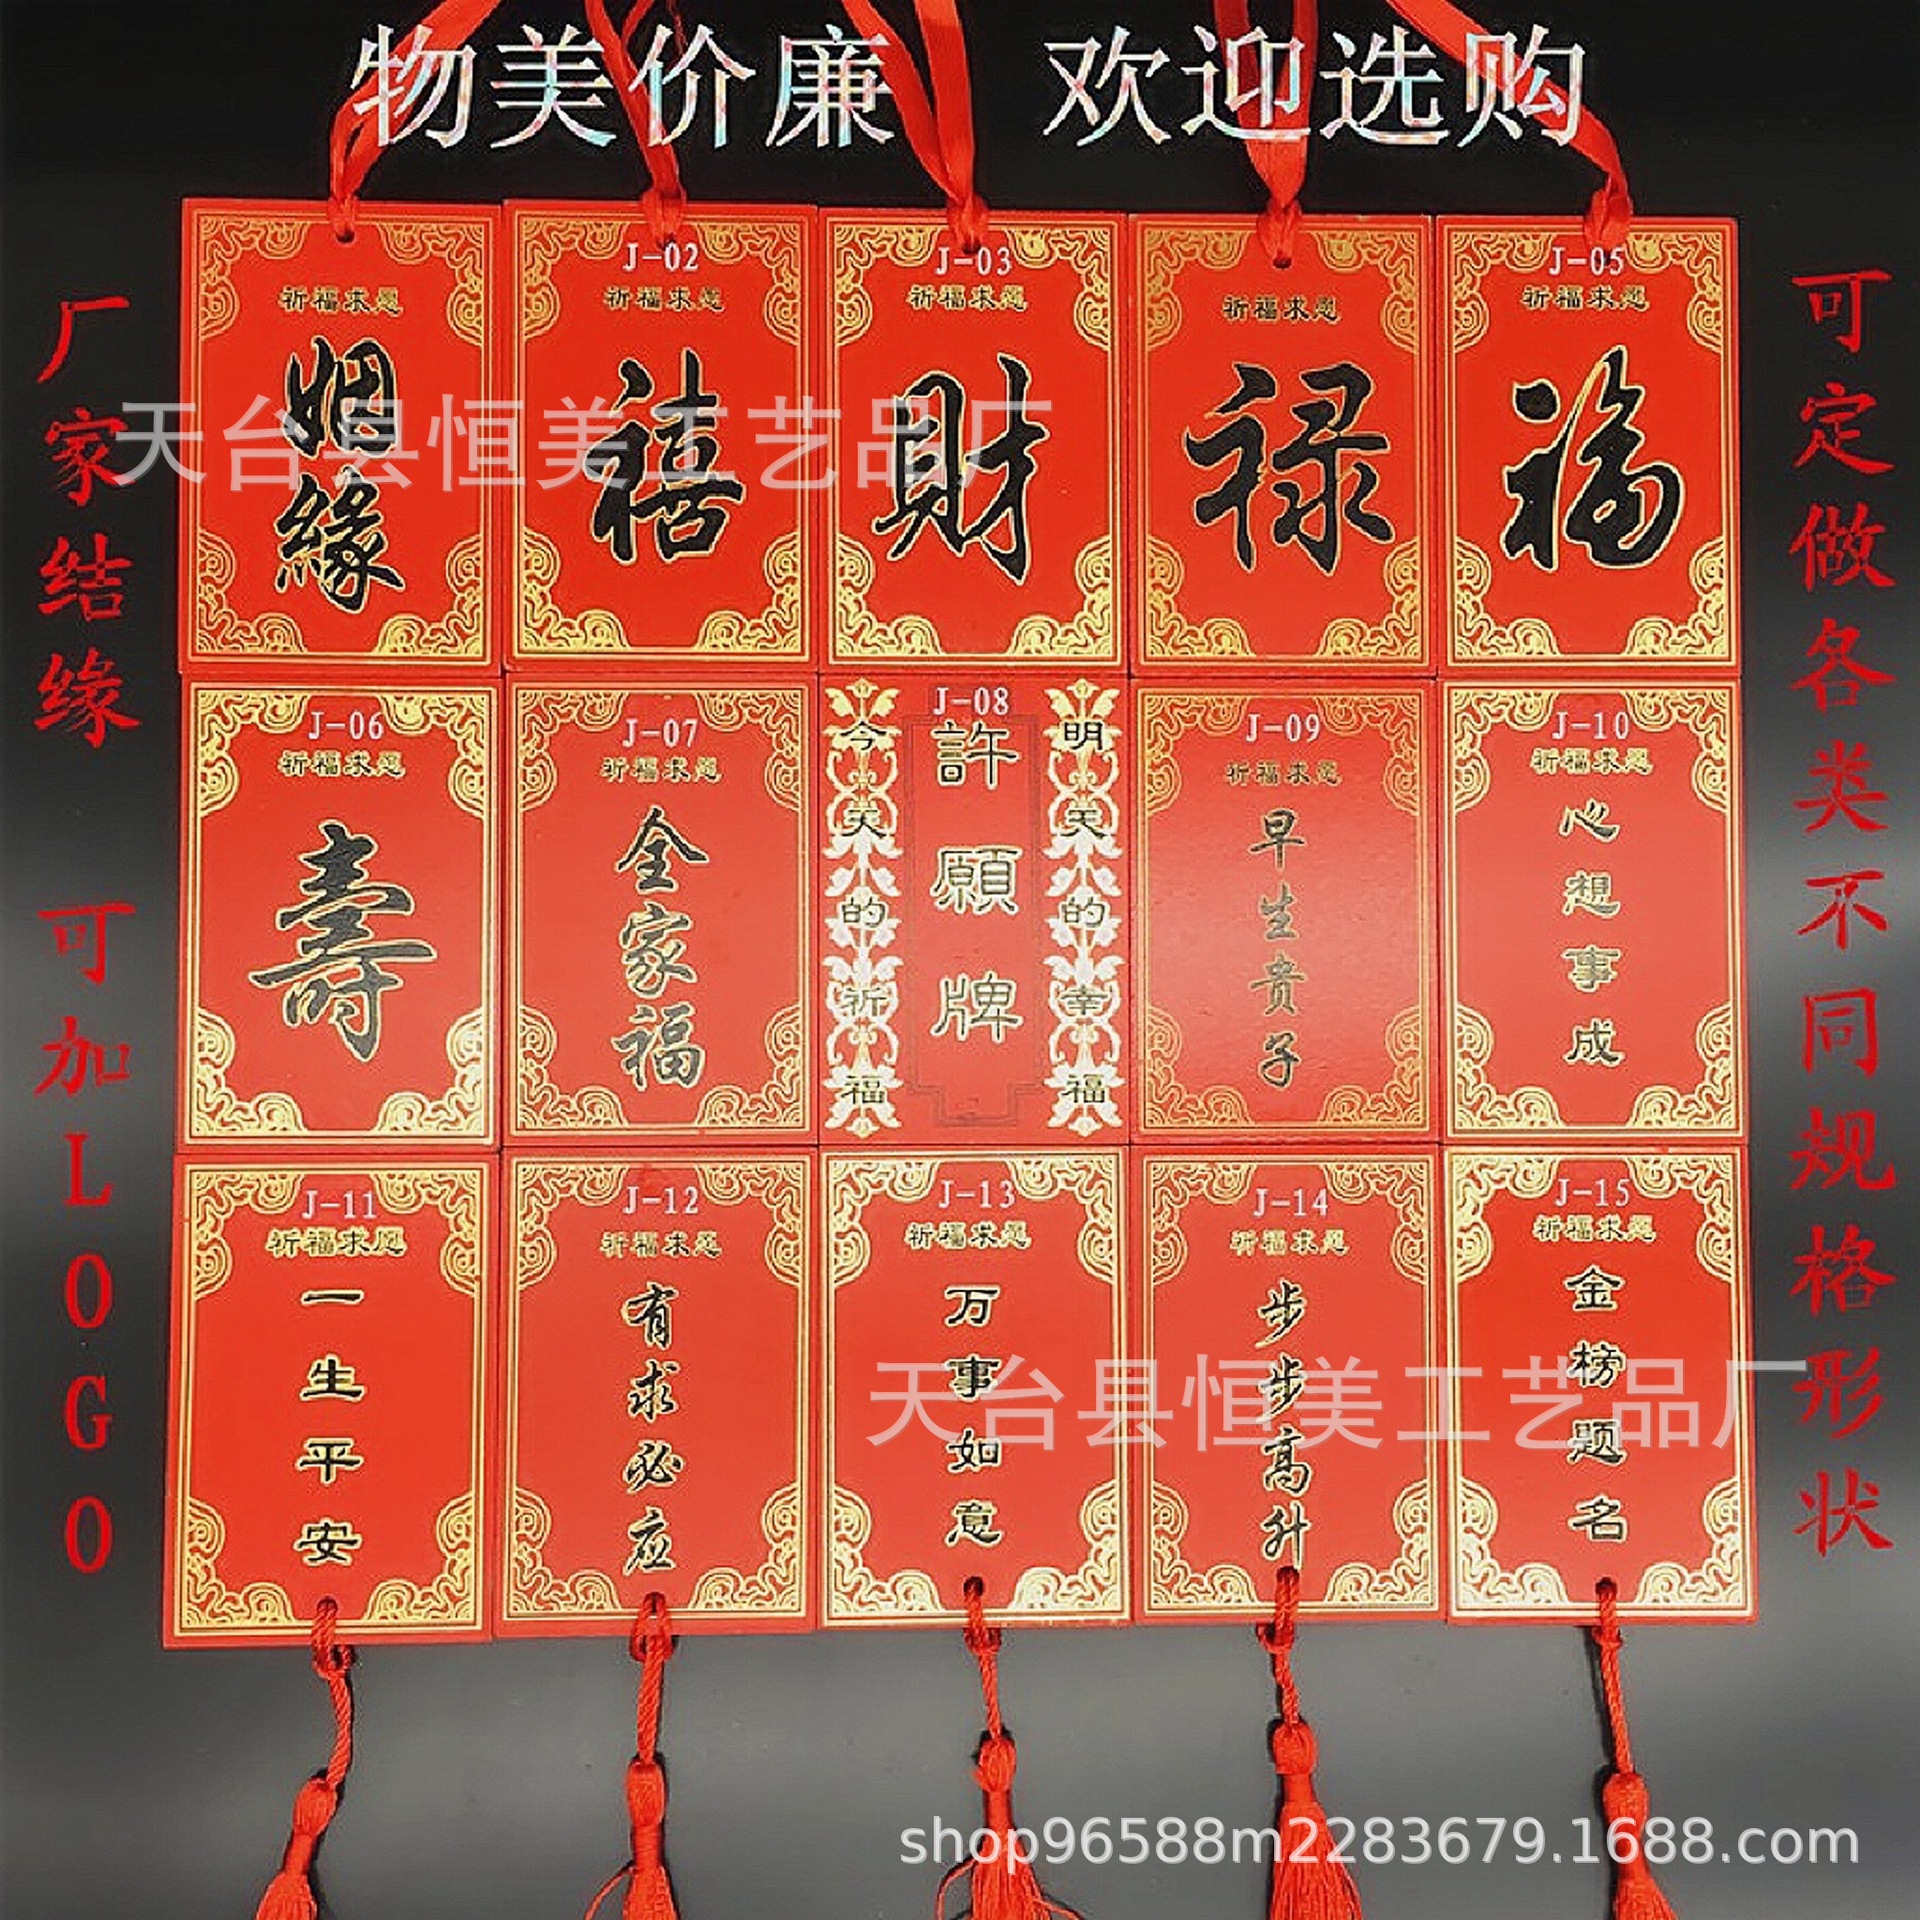 物美价廉 欢迎选购
厂家结缘 可加LOGO
可定做各类不同规格形状
祈福求愿
姻緣
J-02
祈福求愿
禧
J-03
祈福求愿
財
祈福求愿
禄
J-05
祈福求愿
福
天台县恒美工艺品厂
J-06
祈福求愿
壽
J-07
祈福求愿
全家福
J-08
今天的祈福
許願牌
明天的幸福
J-09
祈福求愿
早生贵子
J-10
祈福求愿
心想事成
J-11
祈福求愿
一生平安
J-12
祈福求愿
有求必应
J-13
祈福求愿
万事如意
J-14
祈福求愿
步步高升
J-15
祈福求愿
金榜题名
天台县恒美工艺品厂
shop96588m2283679.1688.com